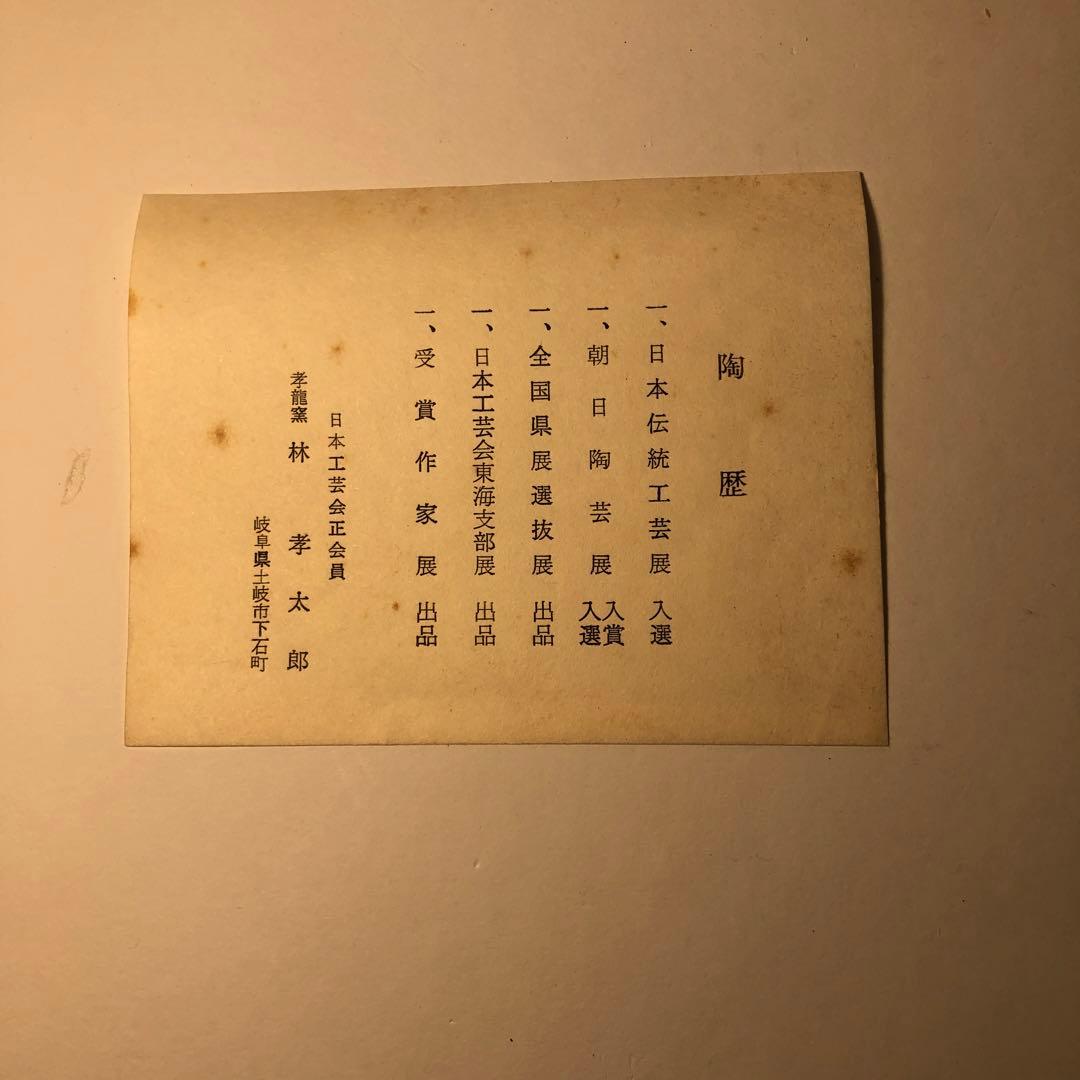 陶歴
一、日本伝統工芸展 入選
一、朝日陶芸展 入賞 入選
一、全国県展選抜展 出品
一、日本工芸会東海支部展 出品
一、受賞作家展 出品
日本工芸会正会員
孝龍窯 林孝太郎
岐阜県土岐市下石町